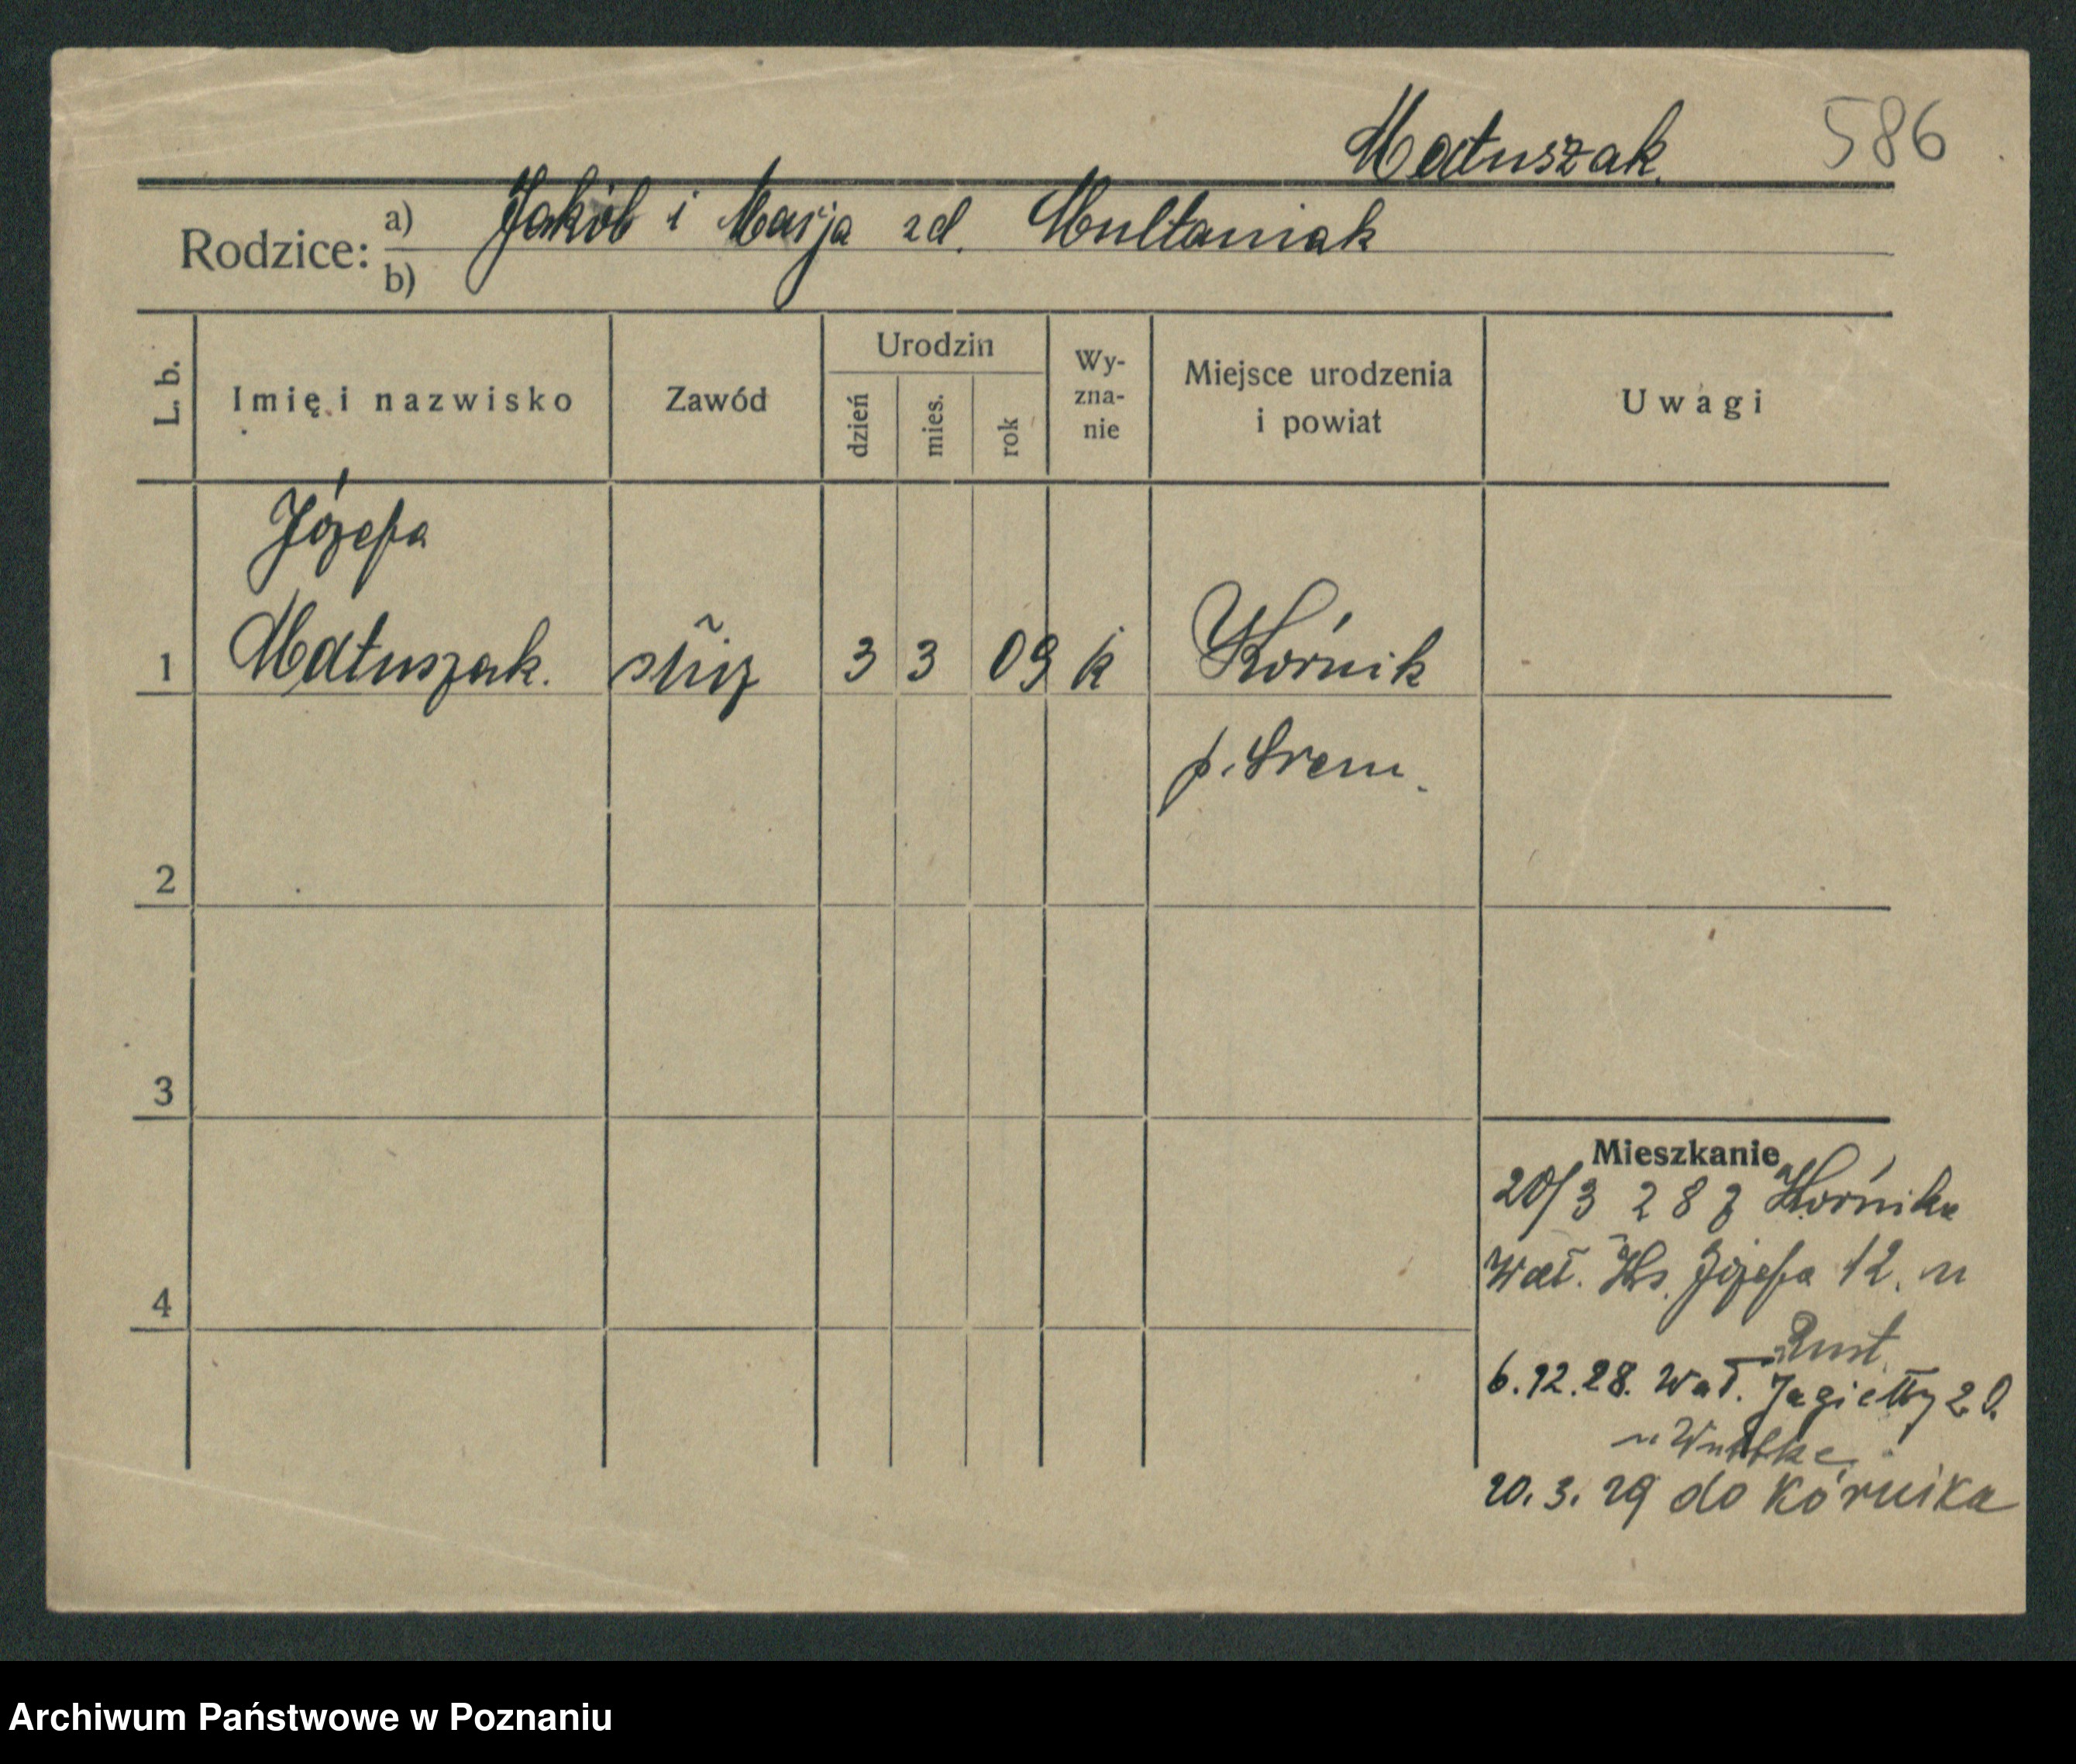 Matuszak. 586
Rodzice: a) Jakób i Marja zd. Multaniak
b)
L. b. Imię i nazwisko Zawód Urodzin dzień mies. rok Wy-zna-nie Miejsce urodzenia i powiat Uwagi
Józefa
1 Matuszak. służ 3 3 09 k Kórnik
p. Śrem.
2
3
Mieszkanie
20/3 28 z Kórnika
Wał. Ks. Józefa 12. u
4
Rust.
6.12.28. Wał. Jagiełły 20.
u Wuttke
20.3.29 do Kórnika
Archiwum Państwowe w Poznaniu